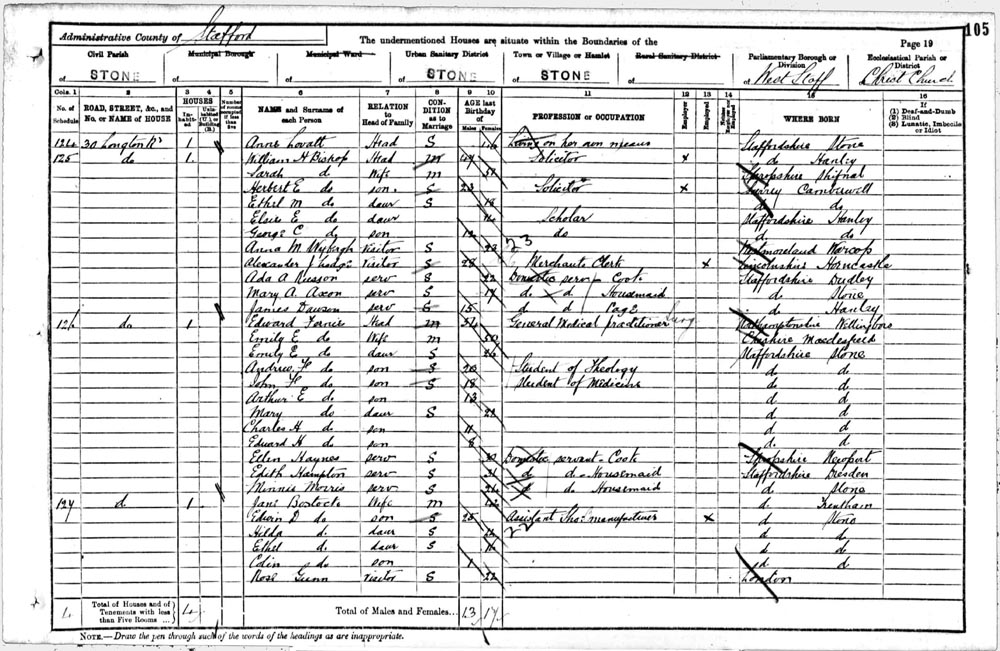 105
Administrative County of Stafford The undermentioned Houses are situate within the Boundaries of the Page 19
Civil Parish Municipal Borough Municipal Ward Urban Sanitary District Town or Village or Hamlet Rural Sanitary District Parliamentary Borough or Division Ecclesiastical Parish or District
of STONE of of of STONE of STONE of of West Staff of Christ Church
Cols. 1 2 3 4 5 6 7 8 9 10 11 12 13 14 15 16
No. of Schedule ROAD, STREET, &c., and No. or NAME of HOUSE HOUSES Inhabited Uninhabited (U.) or Building (B.) Number of rooms occupied if less than five NAME and Surname of each Person RELATION to Head of Family CONDITION as to Marriage AGE last Birthday of Males Females PROFESSION or OCCUPATION Employer Employed Neither Employer nor Employed WHERE BORN If (1) Deaf-and-Dumb (2) Blind (3) Lunatic, Imbecile or Idiot
124 30 Longton Rd 1 Anne Lovatt Head S Living on her own means Staffordshire Stone
125 do 1 William H Bishop Head m Solicitor x do Hanley
Sarah do Wife m Shropshire Shifnal
Herbert E do son S 23 Solicitor x Surrey Camberwell
Ethel M do daur S 18 do do
Elsie E do daur Scholar Staffordshire Hanley
George C do son 12 do d do
Anna M Visitor S 23 Westmoreland Warcop
Alexander J Visitor S 28 Merchants Clerk x Lincolnshire Horncastle
Ada A serv S 22 Domestic serv Cook Staffordshire Dudley
Mary A. Axon serv S 17 d d Housemaid do Stone
James Dawson serv S 15 d d Page do Hanley
126 do 1 Edward Fernie Head m General Medical Practitioner Surg Northamptonshire Wellingboro
Emily E do Wife m 50 Cheshire Macclesfield
Emily E do daur S 26 Staffordshire Stone
Andrew F do son S 20 Student of Theology d d
John F do son S 18 Student of Medicine d d
Arthur E do son 13 d d
Mary do daur S d d
Charles H do son 11 d d
Eduard H do son 8 d d
Ellen Haynes serv S 30 Domestic servant - Cook Shropshire Newport
Edith Hampton serv S 21 d do Housemaid Staffordshire Dresden
Minnie Morris serv S d do Housemaid do Stone
127 d 1 Jane Bostock Wife m d. Trentham
Edwin D do son S 25 Assistant Shoe manufacturer x d Stone
Hilda d. daur S d. d.
Ethel d daur S d. d.
Edin do son 1 d d
Rose Gunn Visitor S 22 London
4 Total of Houses and of Tenements with less than Five Rooms ... 4 Total of Males and Females... 13 17
NOTE.—Draw the pen through such of the words of the headings as are inappropriate.